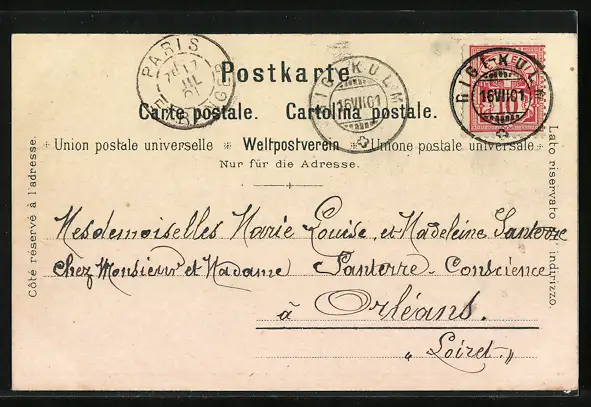 PARIS
ETRANGER
Postkarte
RIGI-KULM
16 VII 01
RIGI-KULM
16 VII 01
10
Carte postale. Cartolina postale.
Union postale universelle * Weltpostverein * Unione postale universale
Nur für die Adresse.
Côté réservé à l'adresse.
Lato riservato all' indirizzo.
Mesdemoiselles Marie Louise et Madeleine Santerre
chez Monsieur et Madame Santerre-Conscience
à Orléans.
„Loiret„